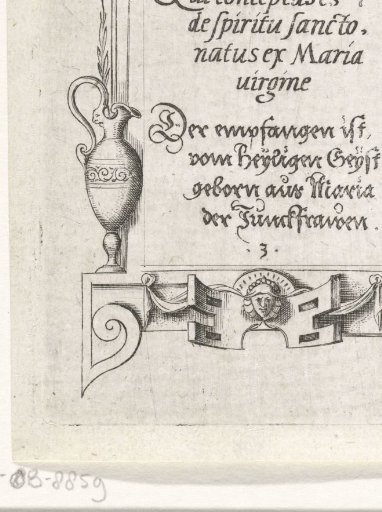 Qui conceptus est
de spiritu sancto,
natus ex Maria
virgine
Der empfangen ist,
vom Heyligen Geyst
geborn aus Maria
der Junckfrawen.
. 3 .
OB-8859